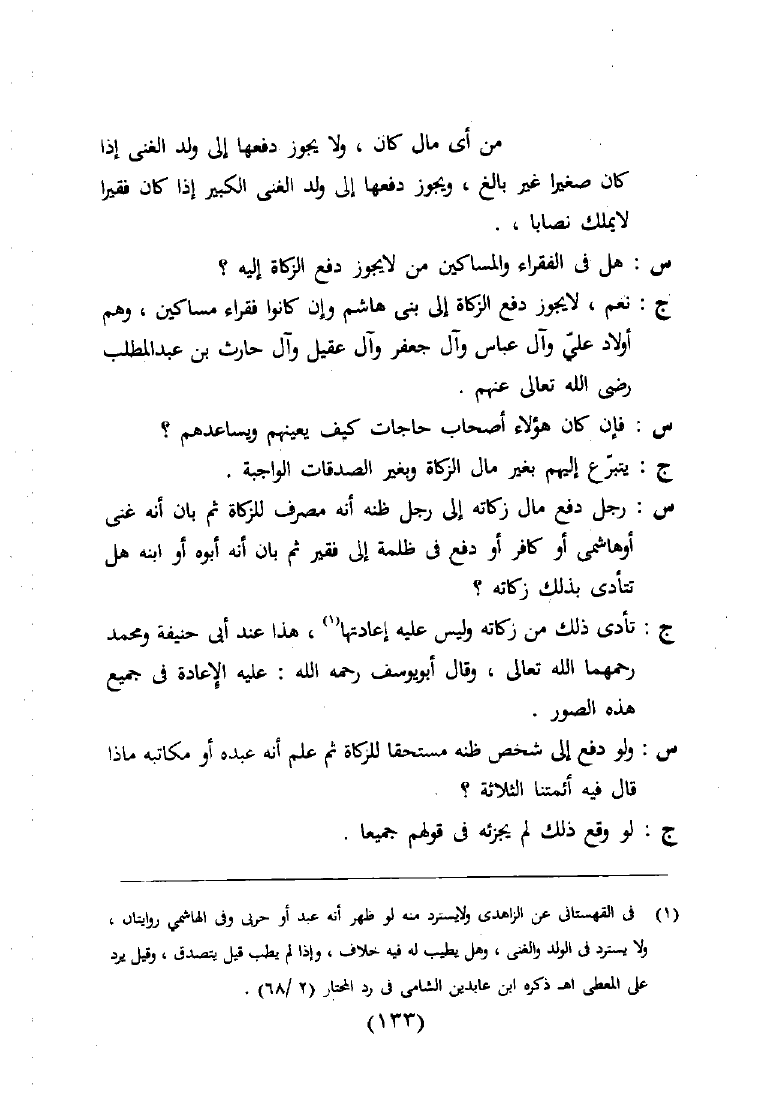 من أى مال كان ، ولا يجوز دفعها إلى ولد الغنى إذا
كان صغيرا غير بالغ ، ويجوز دفعها إلى ولد الغنى الكبير إذا كان فقيرا
لايملك نصابا ، .
س : هل فى الفقراء والمساكين من لايجوز دفع الزكاة إليه ؟
ج : نعم ، لايجوز دفع الزكاة إلى بنى هاشم وإن كانوا فقراء مساكين ، وهم
أولاد عليّ وآل عباس وآل جعفر وآل عقيل وآل حارث بن عبدالمطلب
رضى الله تعالى عنهم .
س : فإن كان هؤلاء أصحاب حاجات كيف يعينهم ويساعدهم ؟
ج : يتبرّع إليهم بغير مال الزكاة وبغير الصدقات الواجبة .
س : رجل دفع مال زكاته إلى رجل ظنه أنه مصرف للزكاة ثم بان أنه غنى
أوهاشمى أو كافر أو دفع فى ظلمة إلى فقير ثم بان أنه أبوه أو ابنه هل
تتأدى بذلك زكاته ؟
ج : تأدى ذلك من زكاته وليس عليه إعادتها(١) ، هذا عند أبى حنيفة ومحمد
رحمهما الله تعالى ، وقال أبويوسف رحمه الله : عليه الإعادة فى جميع
هذه الصور .
س : ولو دفع إلى شخص ظنه مستحقا للزكاة ثم علم أنه عبده أو مكاتبه ماذا
قال فيه أئمتنا الثلاثة ؟
ج : لو وقع ذلك لم يجزئه فى قولهم جميعا .
(١) فى القهستانى عن الزاهدى ولايسترد منه لو ظهر أنه عبد أو حربى وفى الهاشمي روايتان ،
ولا يسترد فى الولد والغنى ، وهل يطيب له فيه خلاف ، وإذا لم يطب قيل يتصدق ، وقيل يرد
على المعطى اهـ ذكره ابن عابدين الشامى فى رد المحتار (٢ /٦٨) .
(١٣٣)